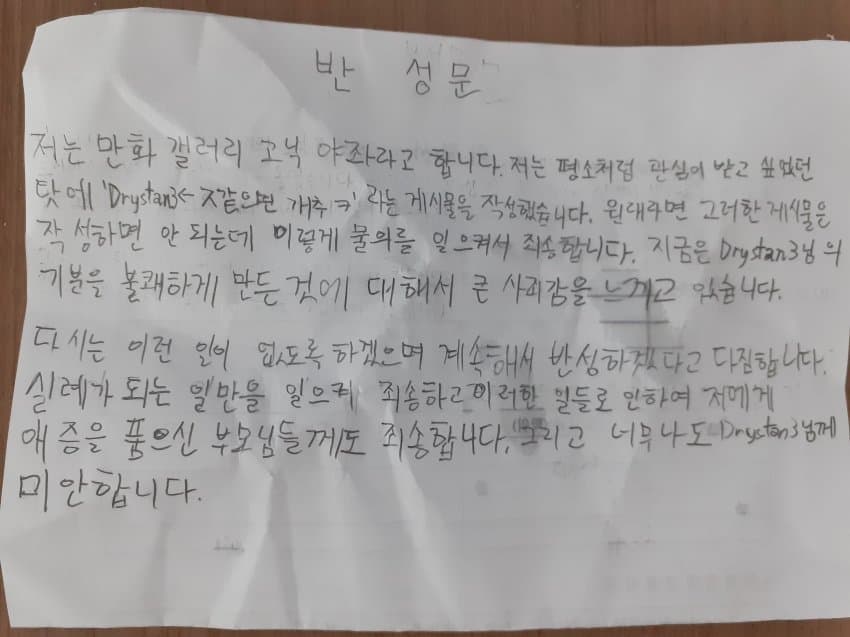 반 성문
저는 만화 갤러리 고닉 야좌라고 합니다. 저는 평소처럼 관심이 받고 싶었던
탓에 'Drystan3<- ㅈ같으면 개추ㅋ' 라는 게시물을 작성했습니다. 원대라면 그러한 게시물은
작성하면 안 되는데 이렇게 물의를 일으켜서 죄송합니다. 지금은 Drystan3님의
기분을 불쾌하게 만든 것에 대해서 큰 사죄감을 느끼고 있습니다.
다시는 이런 일이 없도록 하겠으며 계속해서 반성하겠다고 다짐합니다.
실례가 되는 일만을 일으켜 죄송하고 이러한 일들로 인하여 저에게
애증을 품으신 부모님들께도 죄송합니다. 그리고 너무나도 Drystan3님께
미안합니다.